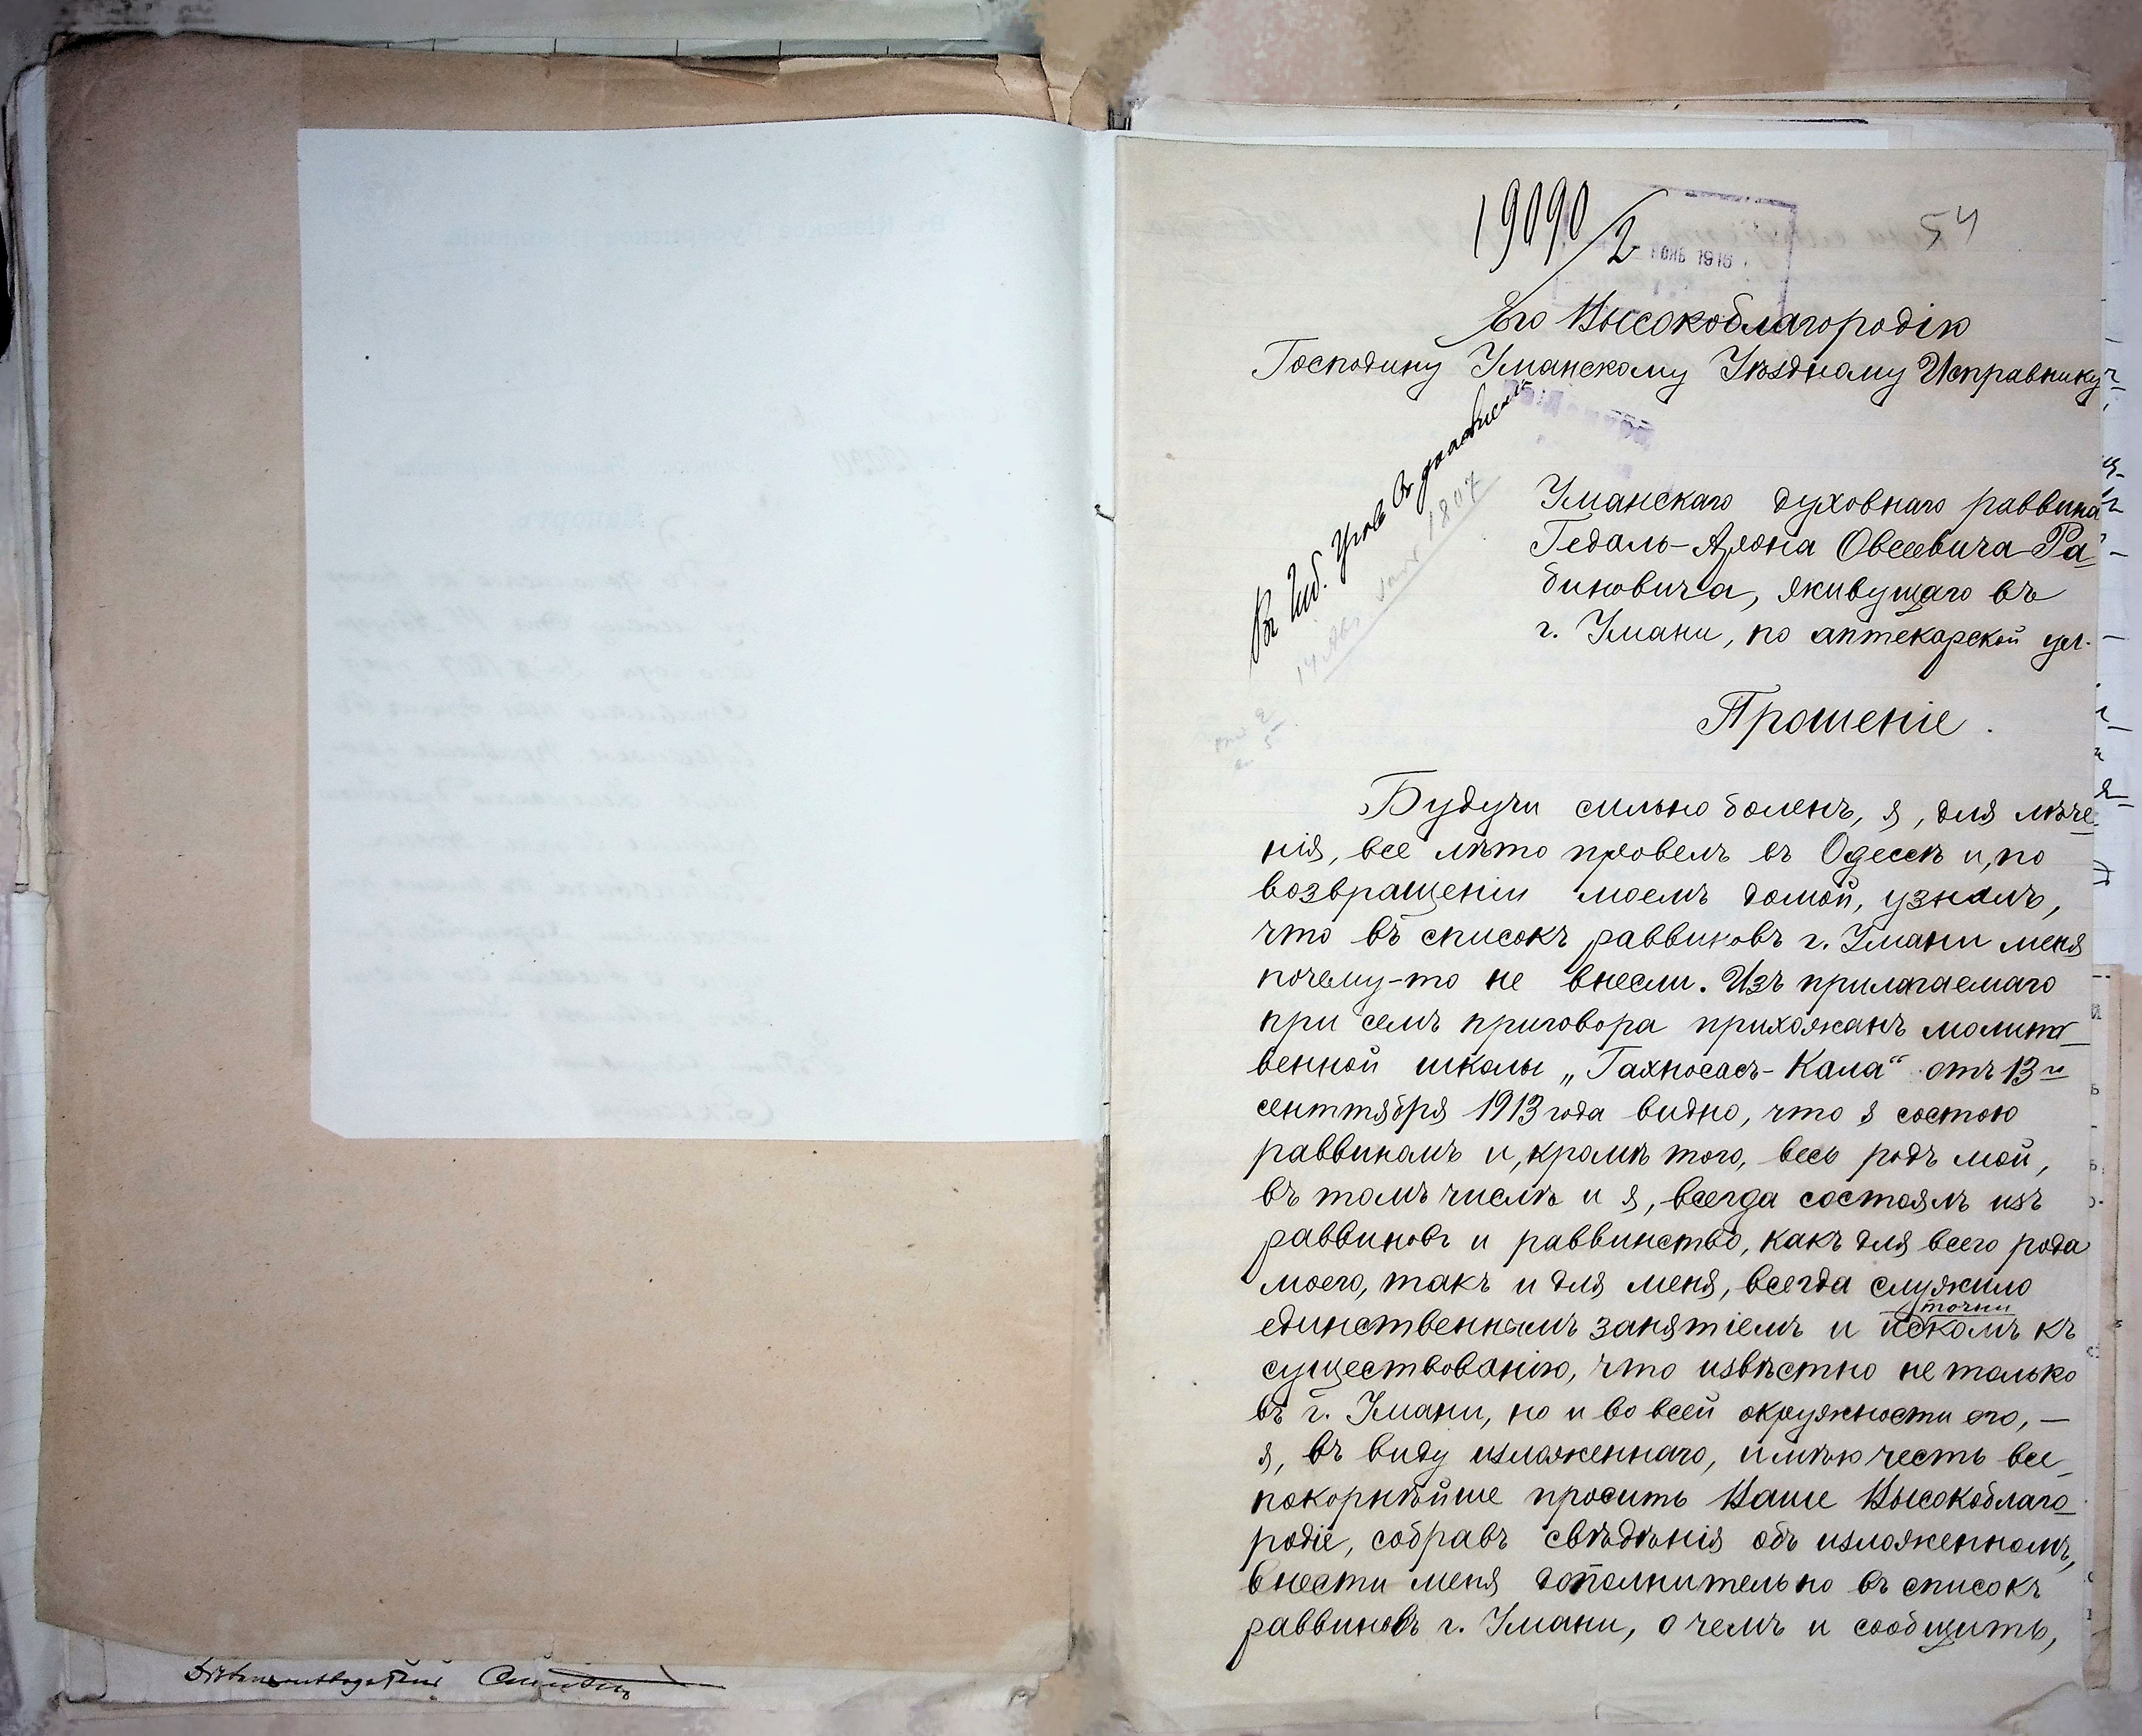 19090/2
НОЯБ 1916
54
Его Высокоблагородію
Господину Уманскому Уѣздному Исправнику
Уманскаго духовнаго раввина
Гедаль-Арона Овсеевича Ра-
биновича, живущаго въ
г. Умани, по аптекарской ул.
Прошеніе.
Будучи сильно боленъ, я, для лѣче-
нія, все лѣто провелъ въ Одессѣ и, по
возвращеніи моемъ домой, узналъ,
что въ списокъ раввиновъ г. Умани меня
почему-то не внесли. Изъ прилагаемаго
при семъ приговора прихожанъ молит-
венной школы „Гахносасъ-Кала“ отъ 13 и
сенттября 1913 года видно, что я состою
раввиномъ и, кромѣ того, весь родъ мой,
въ томъ числѣ и я, всегда состоялъ изъ
раввиновъ и раввинство, какъ для всего рода
моего, такъ и для меня, всегда служило
единственнымъ занятіемъ и источникомъ къ
существованію, что извѣстно не только
въ г. Умани, но и во всей окружности его, —
я, въ виду изложеннаго, имѣю честь все-
покорнѣйше просить Ваше Высокоблаго-
родіе, собравъ свѣдѣнія объ изложенномъ,
внести меня дополнительно въ списокъ
раввиновъ г. Умани, о чемъ и сообщить,